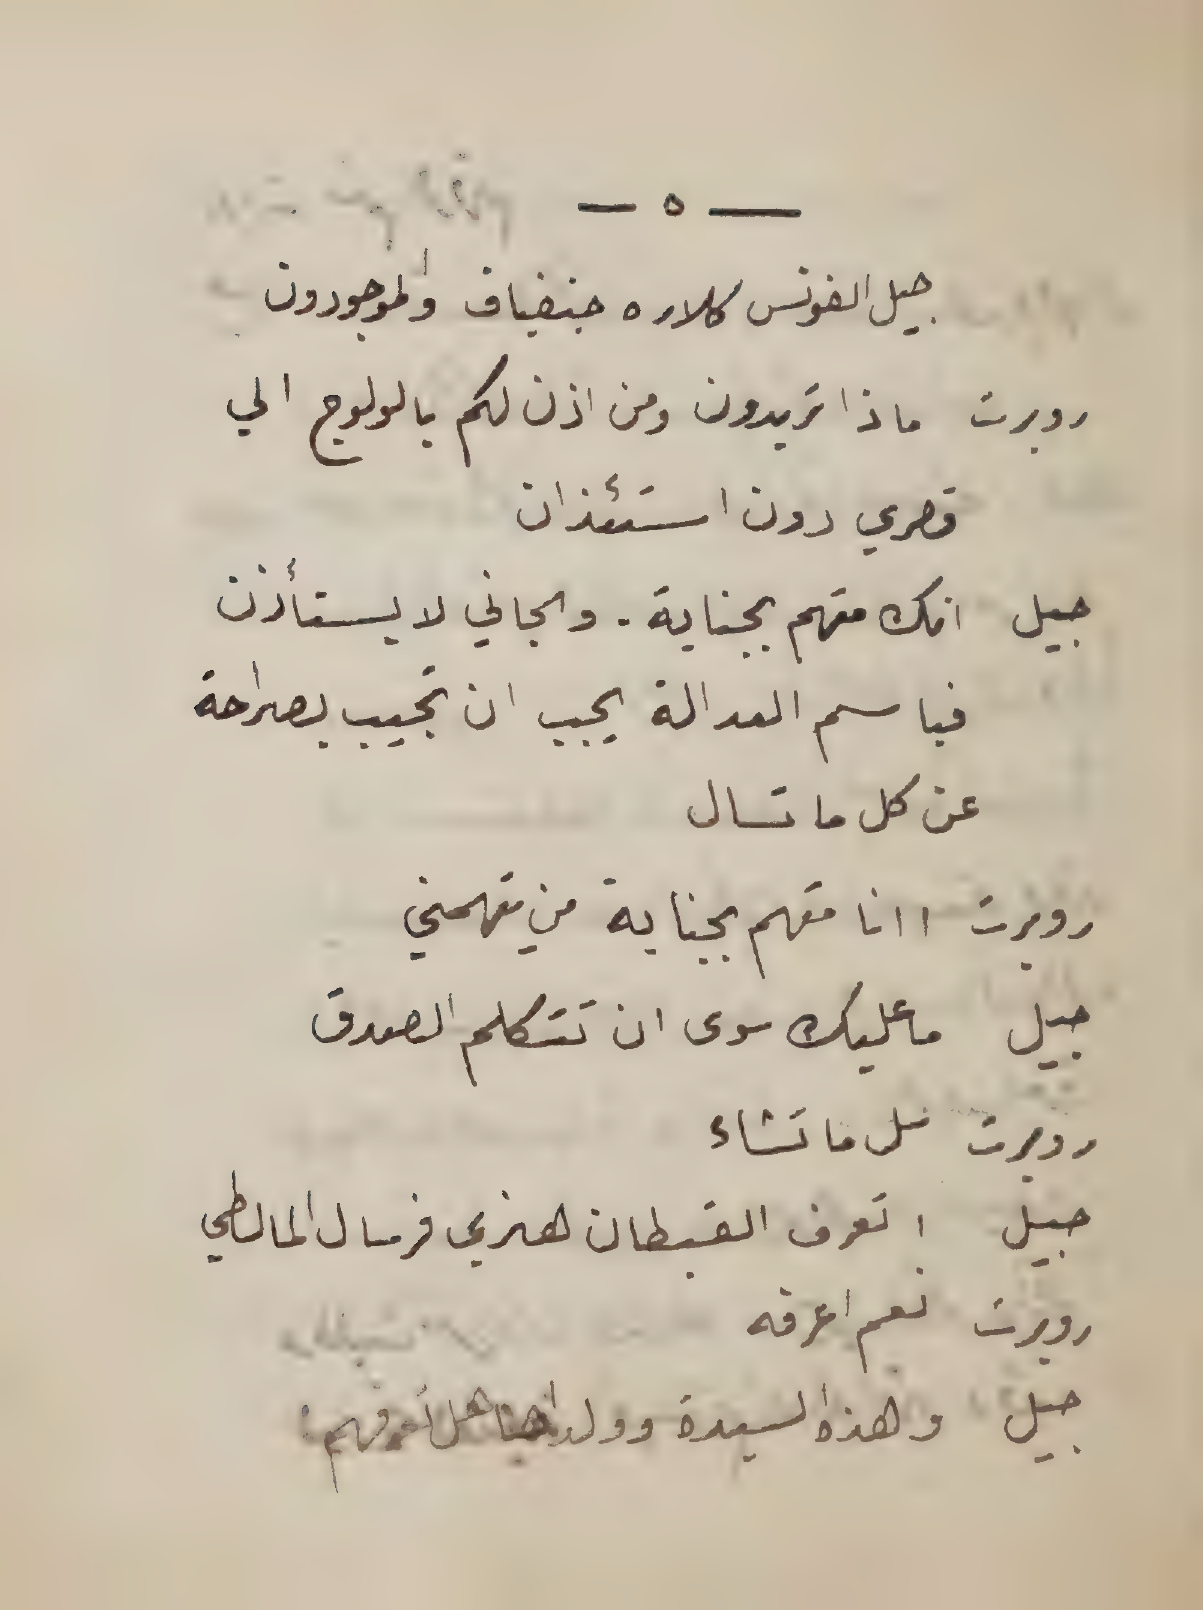 — ٥ —
جبيل الفونس كلاره جنفياف والموجودون
روبرت ماذا تريدون ومن اذن لكم بالولوج الي
قصري دون استئذان
جبيل انك متهم بجناية . والجاني لا يستأذن
فباسم العدالة يجب ان تجيب بصراحة
عن كل ما تسال
روبرت اانا متهم بجناية من يتهمني
جبيل ما عليك سوى ان تتكلم الصدق
روبرت سل ما تشاء
جبيل اتعرف القبطان هنري فرسال المالطي
روبرت نعم اعرفه
جبيل وهذه السيدة وولداها هل تعرفهم